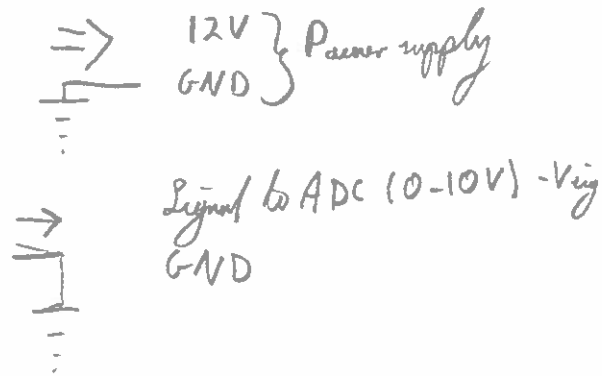 12V } Power supply
GND
Signal to ADC (0-10V) - Vsig
GND